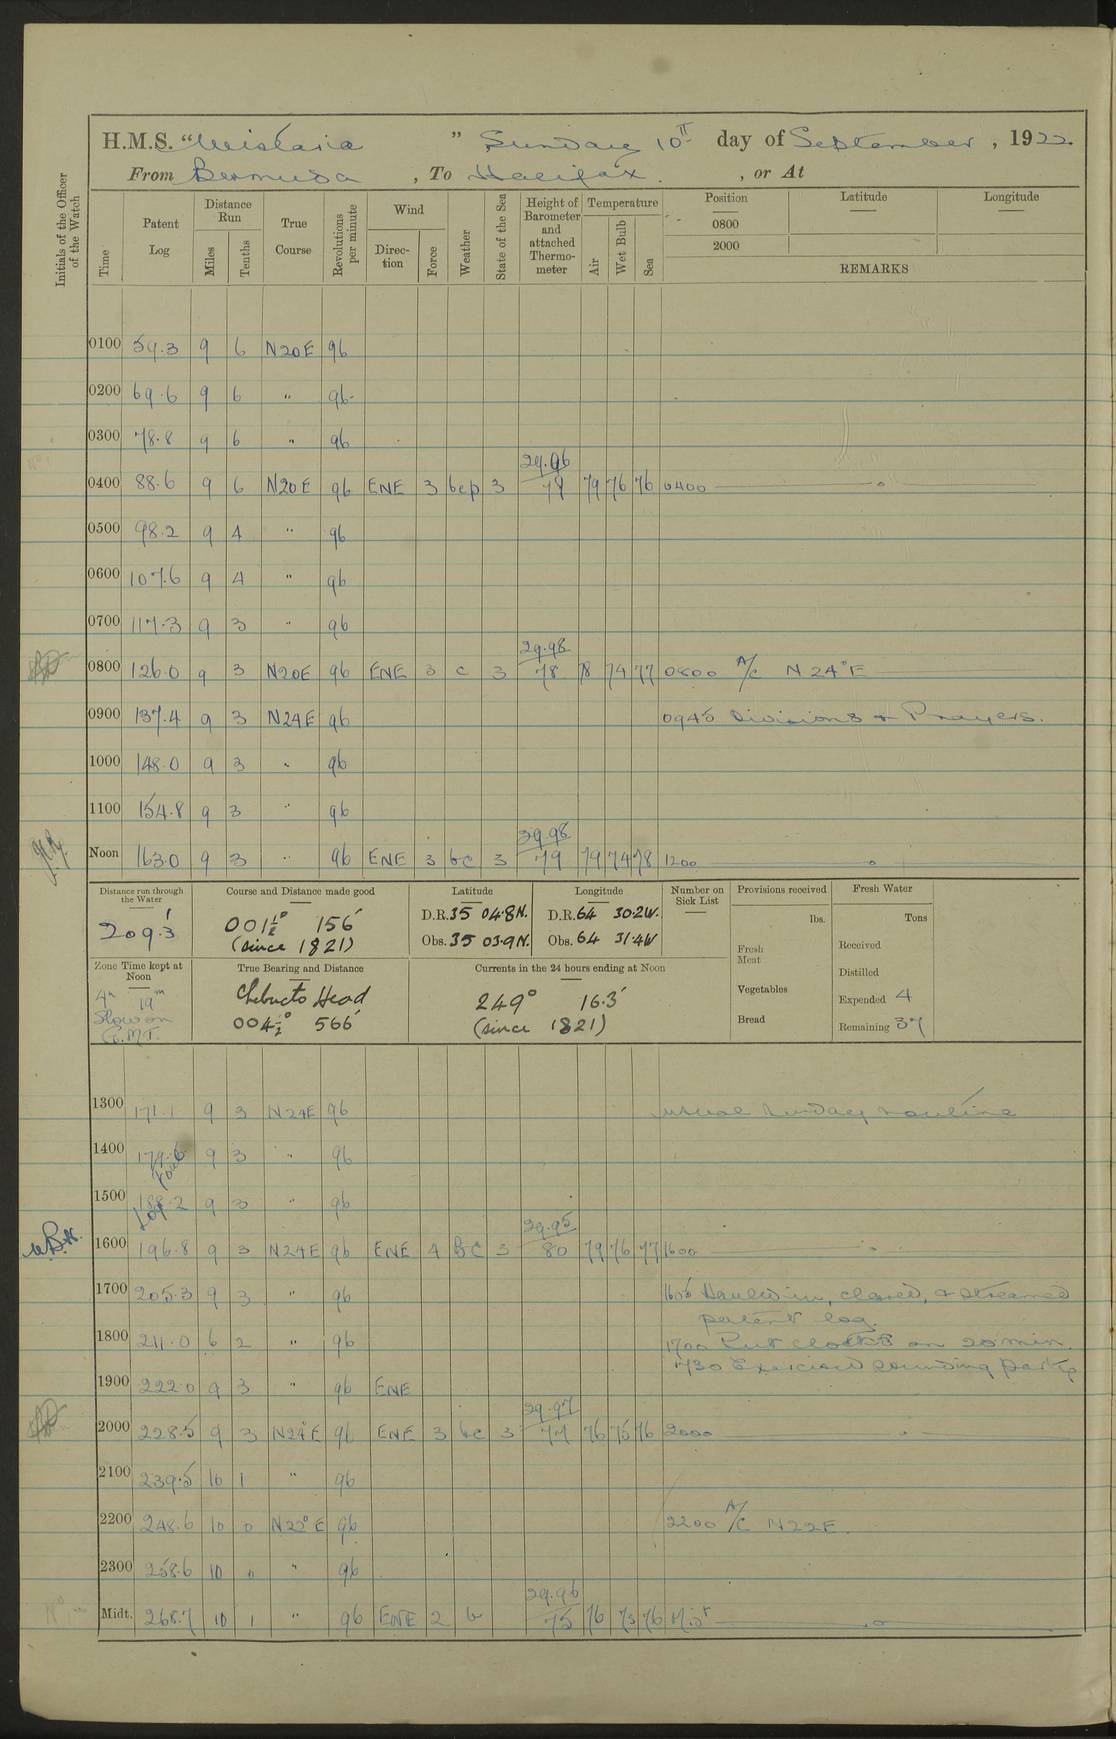 H.M.S. “Wistaria” Sunday 10th day of September, 1922.
From Bermuda, To Halifax., or At
Initials of the Officer of the Watch
Time
Patent Log
Distance Run
Miles
Tenths
True Course
Revolutions per minute
Wind
Direc-tion
Force
Weather
State of the Sea
Height of Barometer and attached Thermo-meter
Temperature
Air
Wet Bulb
Sea
Position Latitude Longitude
0800
2000
REMARKS
0100 59.3 9 6 N20E 96
0200 69.6 9 6 " 96
0300 78.8 9 6 " 96
29.96
0400 88.6 9 6 N20E 96 ENE 3 bcp 3 79 79 76 76 0400
0500 98.2 9 4 " 96
0600 107.6 9 4 " 96
0700 117.3 9 3 " 96
29.98
0800 126.0 9 3 N20E 96 ENE 3 c 3 78 78 74 77 0800 A/c N24°E
0900 137.4 9 3 N24E 96 0945 Divisions & Prayers.
1000 148.0 9 3 " 96
1100 154.8 9 3 " 96
29.98
Noon 163.0 9 3 " 96 ENE 3 bc 3 79 79 74 78 1200
Distance run through the Water
209.3
Course and Distance made good
001½° 156'
(since 1821)
Latitude
D.R. 35 04.8N.
Obs. 35 03.9N.
Longitude
D.R. 64 30.2W.
Obs. 64 31.4W
Number on Sick List
Provisions received
lbs.
Fresh Meat
Vegetables
Bread
Fresh Water
Tons
Received
Distilled
Expended 4
Remaining 37
Zone Time kept at Noon
4h 19m
Slow on
G.M.T.
True Bearing and Distance
Chebucto Head
004½° 566'
Currents in the 24 hours ending at Noon
249° 16.3'
(since 1821)
1300 171.1 9 3 N24E 96 usual Sunday routine
1400 179.6 9 3 " 96
1500 188.2 9 3 " 96
Log Foul
29.95
1600 196.8 9 3 N24E 96 ENE 4 BC 3 80 79 76 77 1600
1700 205.3 9 3 " 96 1605 Hauled in, cleared, & streamed
patent log.
1800 211.0 6 2 " 96 1700 Put clocks on 20 min.
1730 Exercised sounding party
1900 222.0 9 3 " 96 ENE
29.97
2000 228.5 9 3 N24E 96 ENE 3 bc 3 77 76 75 76 2000
2100 239.5 10 1 " 96
2200 248.6 10 0 N22°E 96 2200 A/c N22E.
2300 258.6 10 0 " 96
29.96
Midt. 268.7 10 1 " 96 ENE 2 b 75 76 73 76 Midt